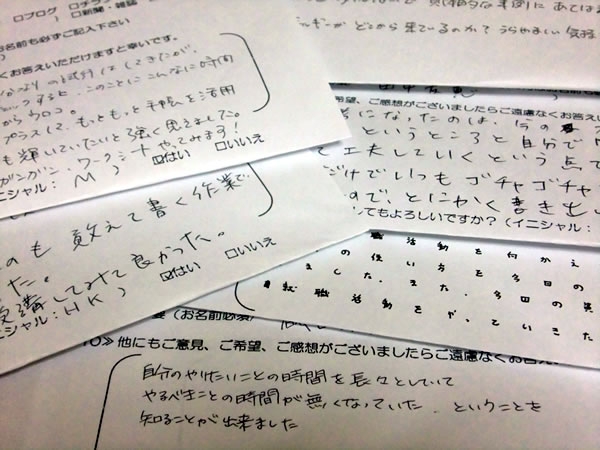 □ブログ □チラシ
□新聞・雑誌
お名前も必ずご記入下さい
くお答えいただけますと幸いです。
このことにこんなに時間
からウロコ。
プラスして、もっともっと手帳を活用
も輝いていたいと強く思えました。
ワークシートやってみます!
イニシャル: M )
☑はい □いいえ
も 敢えて書く作業で
た。
受講してみて良かった。
ニシャル: H K )
☑はい □いいえ
どこから来ているのか?
希望、ご感想がございましたらご遠慮なくお答えい
になったのは、
というところと自分で
て工夫していくという
だけでいつもゴチャゴチャ
ので、とにかく書き出し
てもよろしいですか? (イニシャル:
活動を向かえ
の使い方を今日の
ました。また、今回の
転職活動をやっていきた
(お名前必須)
10≫ 他にもご意見、ご希望、ご感想がございましたらご遠慮なくお答え
自分のやりたいことの時間を長々としていて
やるべきことの時間が無くなっていた、ということを
知ることが出来ました